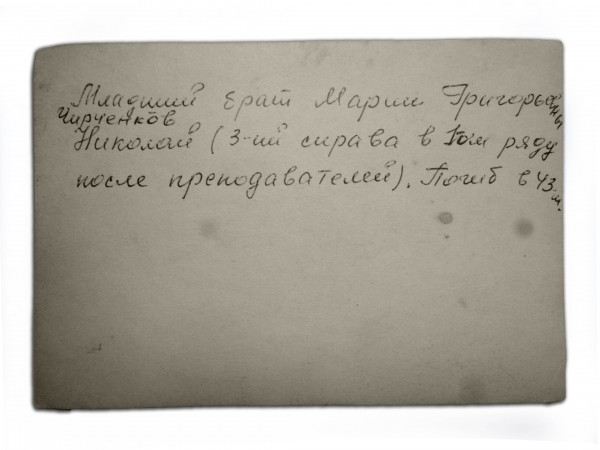 Младший брат Марии Григорьевны
Чирченков
Николай (3-ий справа в 1ом ряду
после преподавателей). Погиб в 43-м.